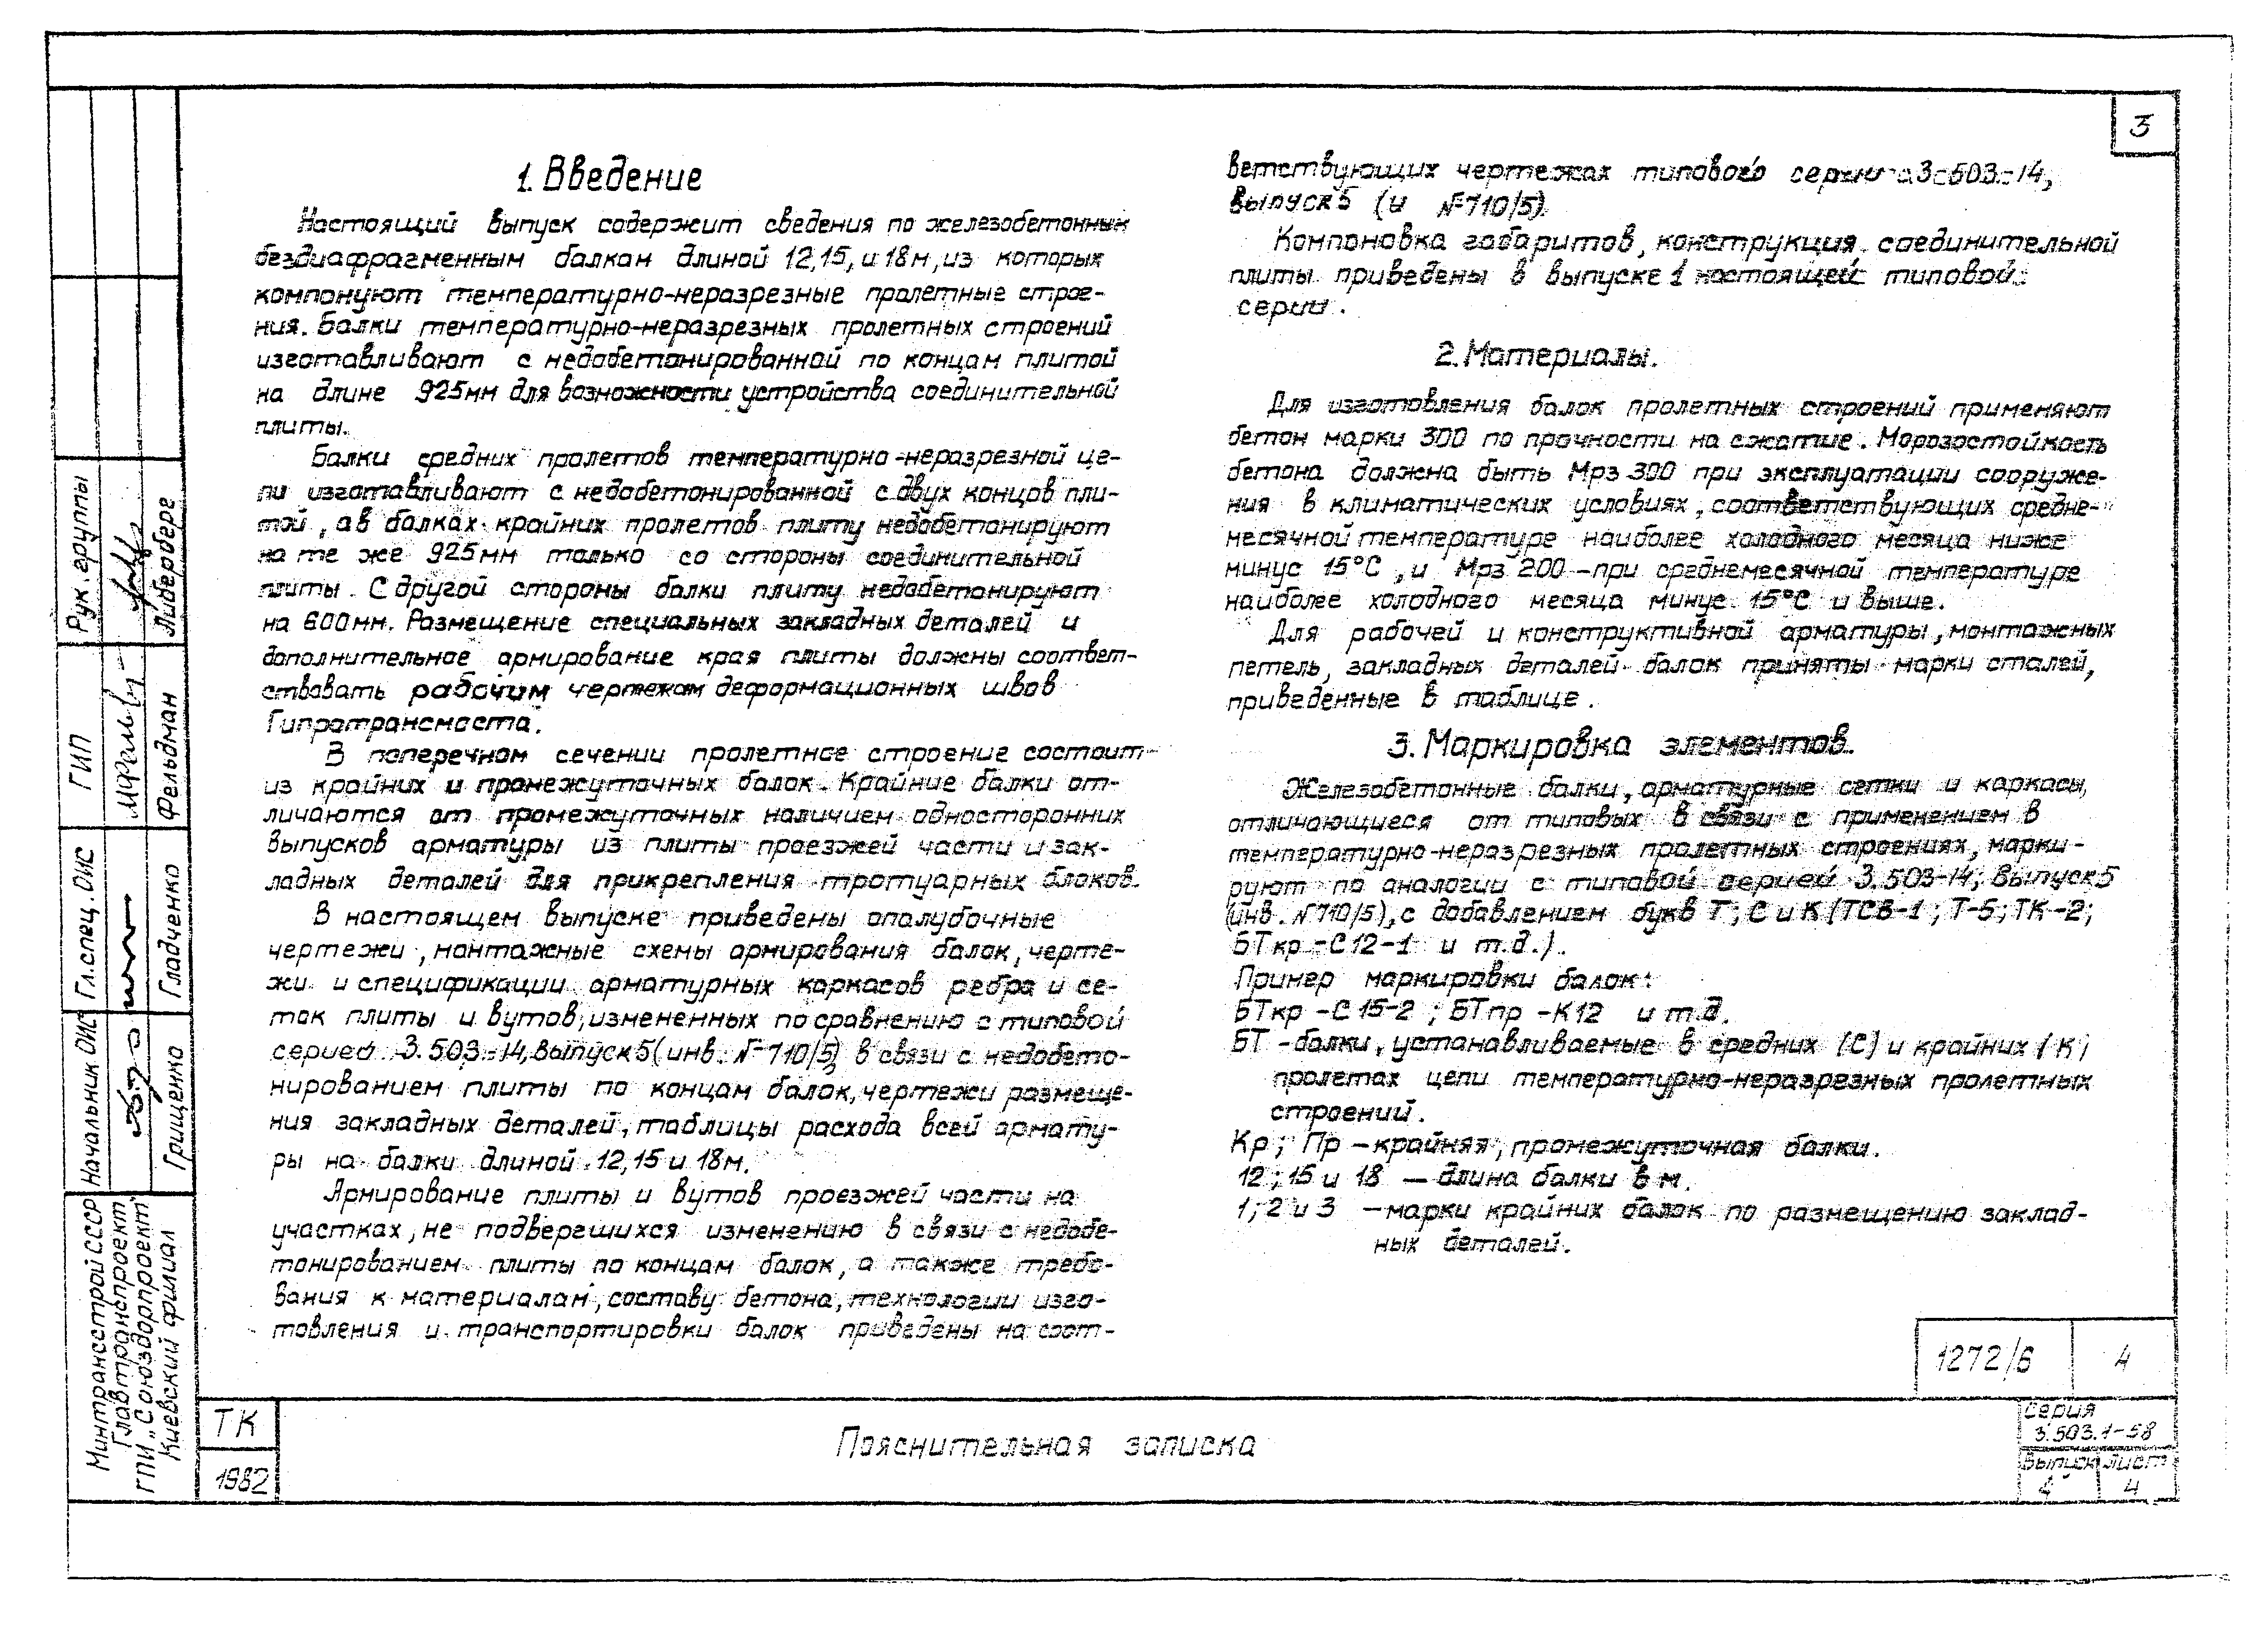 3
1. Введение
Настоящий выпуск содержит сведения по железобетонным
бездиафрагменным балкам длиной 12,15, и 18м, из которых
компонуют температурно-неразрезные пролетные строе-
ния. Балки температурно-неразрезных пролетных строений
изготавливают с недобетонированной по концам плитой
на длине 925мм для возможности устройства соединительной
плиты.
Балки средних пролетов температурно-неразрезной це-
пи изготавливают с недобетонированной с двух концов пли-
той, а в балках крайних пролетов плиту недобетонируют
на те же 925мм только со стороны соединительной
плиты. С другой стороны балки плиту недобетонируют
на 600мм. Размещение специальных закладных деталей и
дополнительное армирование края плиты должны соответ-
ствовать рабочим чертежам деформационных швов
Гипротрансмоста.
В поперечном сечении пролетное строение состоит
из крайних и промежуточных балок. Крайние балки от-
личаются от промежуточных наличием односторонних
выпусков арматуры из плиты проезжей части и зак-
ладных деталей для прикрепления тротуарных блоков.
В настоящем выпуске приведены опалубочные
чертежи, монтажные схемы армирования балок, черте-
жи и спецификации арматурных каркасов ребра и се-
ток плиты и вутов, измененных по сравнению с типовой
серией 3.503-14, выпуск 5 (инв. № 710/5) в связи с недобето-
нированием плиты по концам балок, чертежи размеще-
ния закладных деталей, таблицы расхода всей армату-
ры на балки длиной 12,15 и 18м.
Армирование плиты и вутов проезжей части на
участках, не подвергшихся изменению в связи с недобе-
тонированием плиты по концам балок, а также требо-
вания к материалам, составу бетона, технологии изго-
товления и транспортировки балок приведены на соот-
ветствующих чертежах типового серии 3.503-14,
выпуск 5 (и № 710/5)
Компоновка габаритов, конструкция соединительной
плиты приведены в выпуске 1 настоящей типовой
серии.
2. Материалы.
Для изготовления балок пролетных строений применяют
бетон марки 300 по прочности на сжатие. Морозостойкость
бетона должна быть Мрз 300 при эксплуатации сооруже-
ния в климатических условиях, соответствующих средне-
месячной температуре наиболее холодного месяца ниже
минус 15°С, и Мрз 200 - при среднемесячной температуре
наиболее холодного месяца минус 15°С и выше.
Для рабочей и конструктивной арматуры, монтажных
петель, закладных деталей балок приняты марки сталей,
приведенные в таблице.
3. Маркировка элементов.
Железобетонные балки, арматурные сетки и каркасы,
отличающиеся от типовых в связи с применением в
температурно-неразрезных пролетных строениях, марки-
руют по аналогии с типовой серией 3.503-14, выпуск 5
(инв. № 710/5), с добавлением букв Т; С и К (ТСВ-1; Т-5; ТК-2;
БТкр-С12-1 и т.д.).
Пример маркировки балок:
БТкр-С15-2; БТпр-К12 и т.д.
БТ - балки, устанавливаемые в средних (С) и крайних (К)
пролетах цепи температурно-неразрезных пролетных
строений.
Кр; Пр - крайняя, промежуточная балки.
12; 15 и 18 - длина балки в м.
1; 2 и 3 - марки крайних балок по размещению заклад-
ных деталей.
Рук. группы Либербере
ГИП Фельдман
Гл. спец. ОИС Гладченко
Начальник ОИС Грищенко
Минтрансстрой СССР
Главтранспроект
ГПИ „Союздорпроект"
Киевский филиал
1272/6 4
ТК
1982
Пояснительная записка
Серия
3.503.1-58
Выпуск Лист
4 4